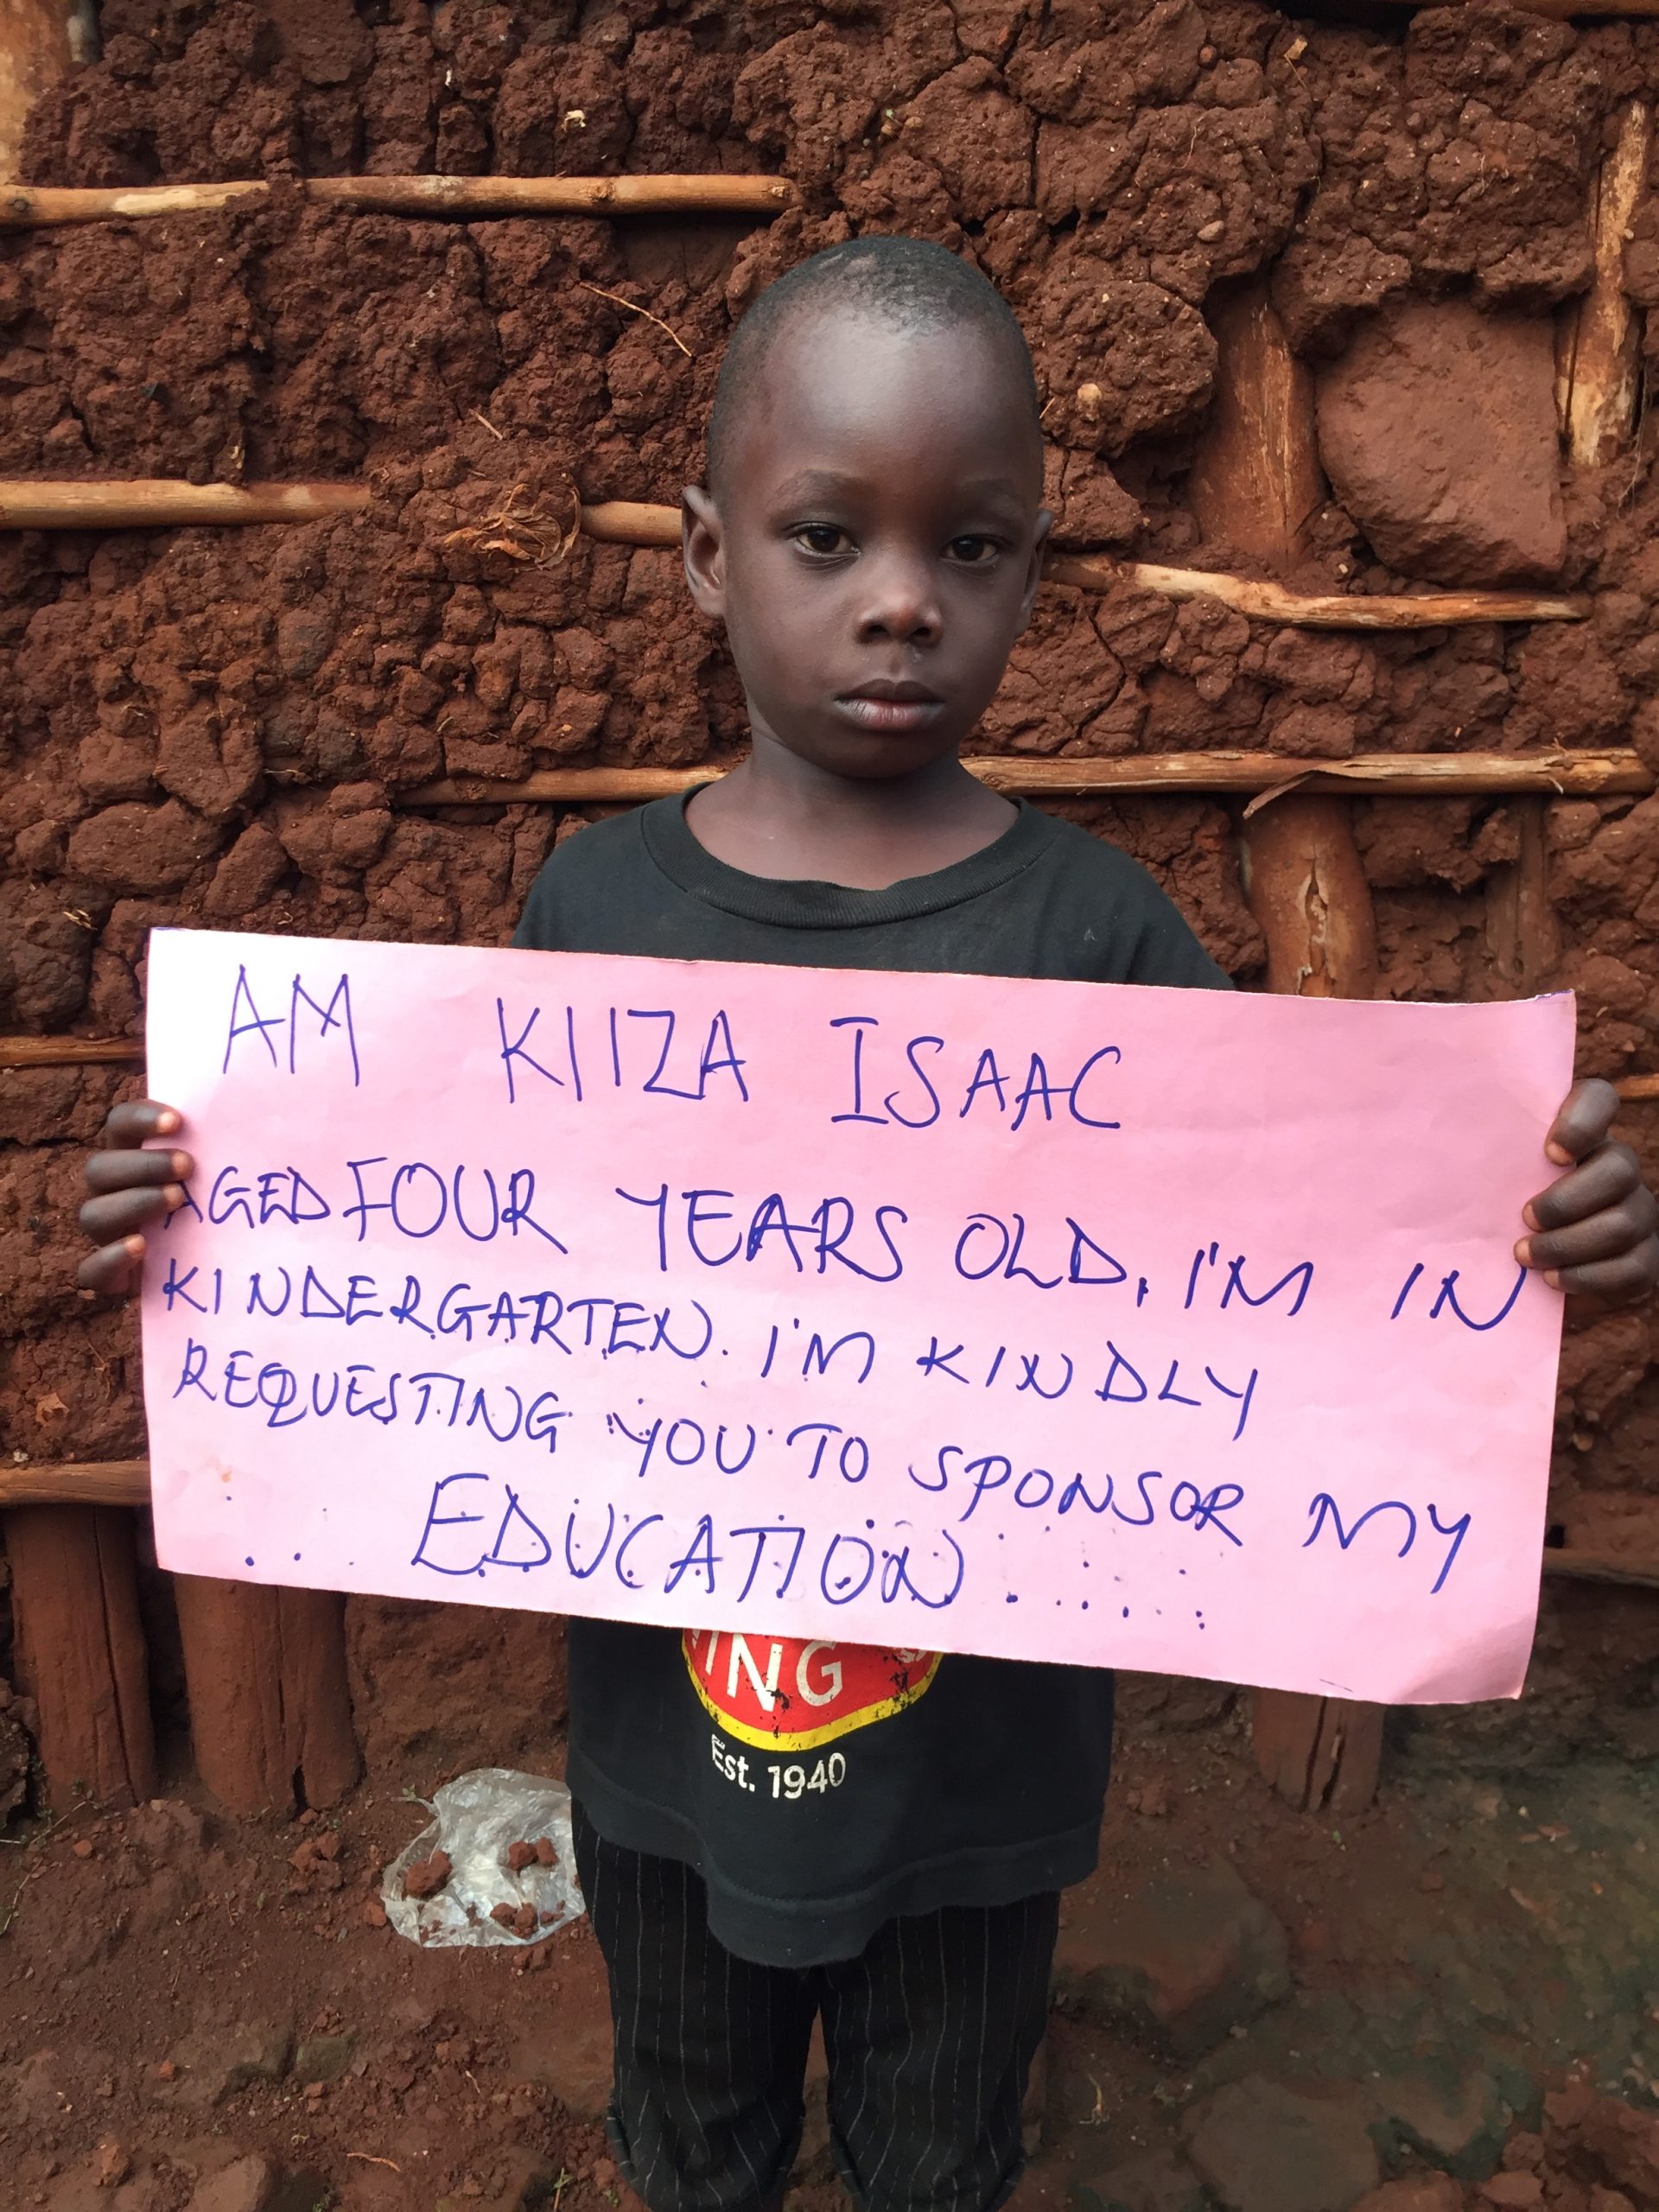 AM KIIZA ISAAC
AGED FOUR YEARS OLD, I'M IN
KINDERGARTEN. I'M KINDLY
REQUESTING YOU TO SPONSOR MY
... EDUCATION ......
ING
Est. 1940